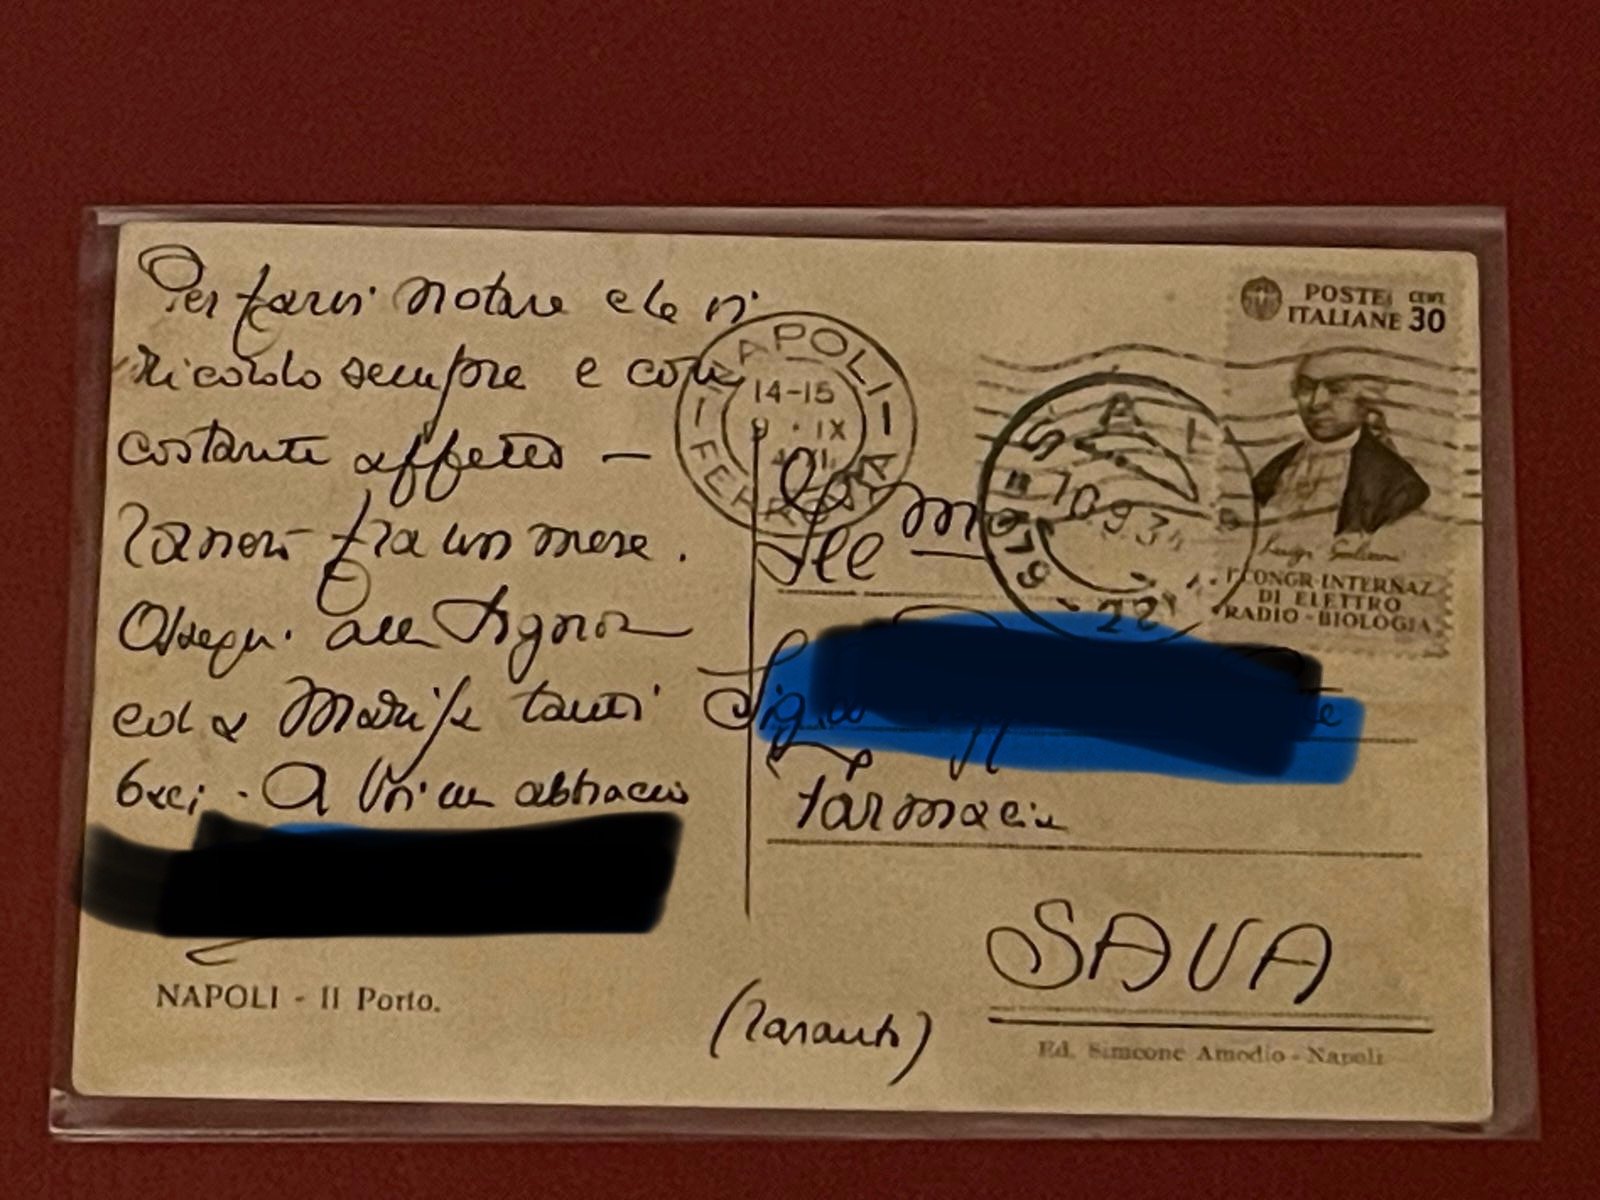 Per farvi notare che vi
ricordo sempre e con
costante affetto —
Tornerò fra un mese.
Ossequi alla Signora
ed a Marisa tanti
baci. A Voi un abbraccio
NAPOLI - Il Porto.
NAPOLI
FERROVIA
14-15
9 · IX
POSTE CENT
ITALIANE 30
Luigi Galvani
I° CONGR·INTERNAZ
DI ELETTRO
RADIO-BIOLOGIA
10.9.34
22
Farmacia
SAVA
(Taranto)
Ed. Simeone Amodio - Napoli